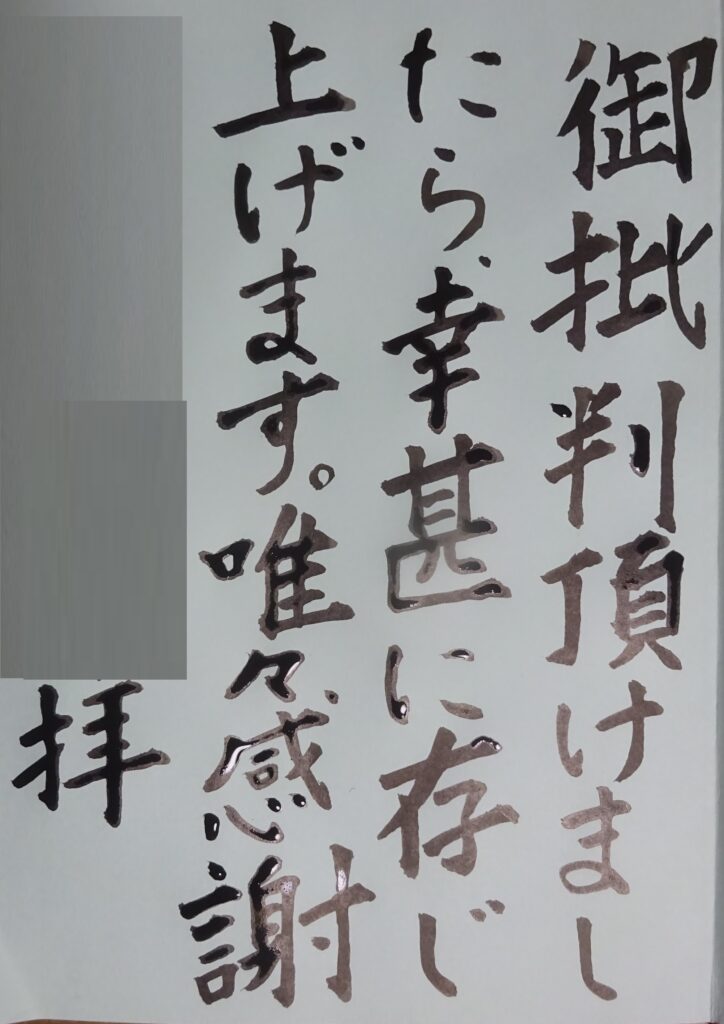 御批判頂けまし
たら、幸甚に存じ
上げます。唯々、感謝
拝